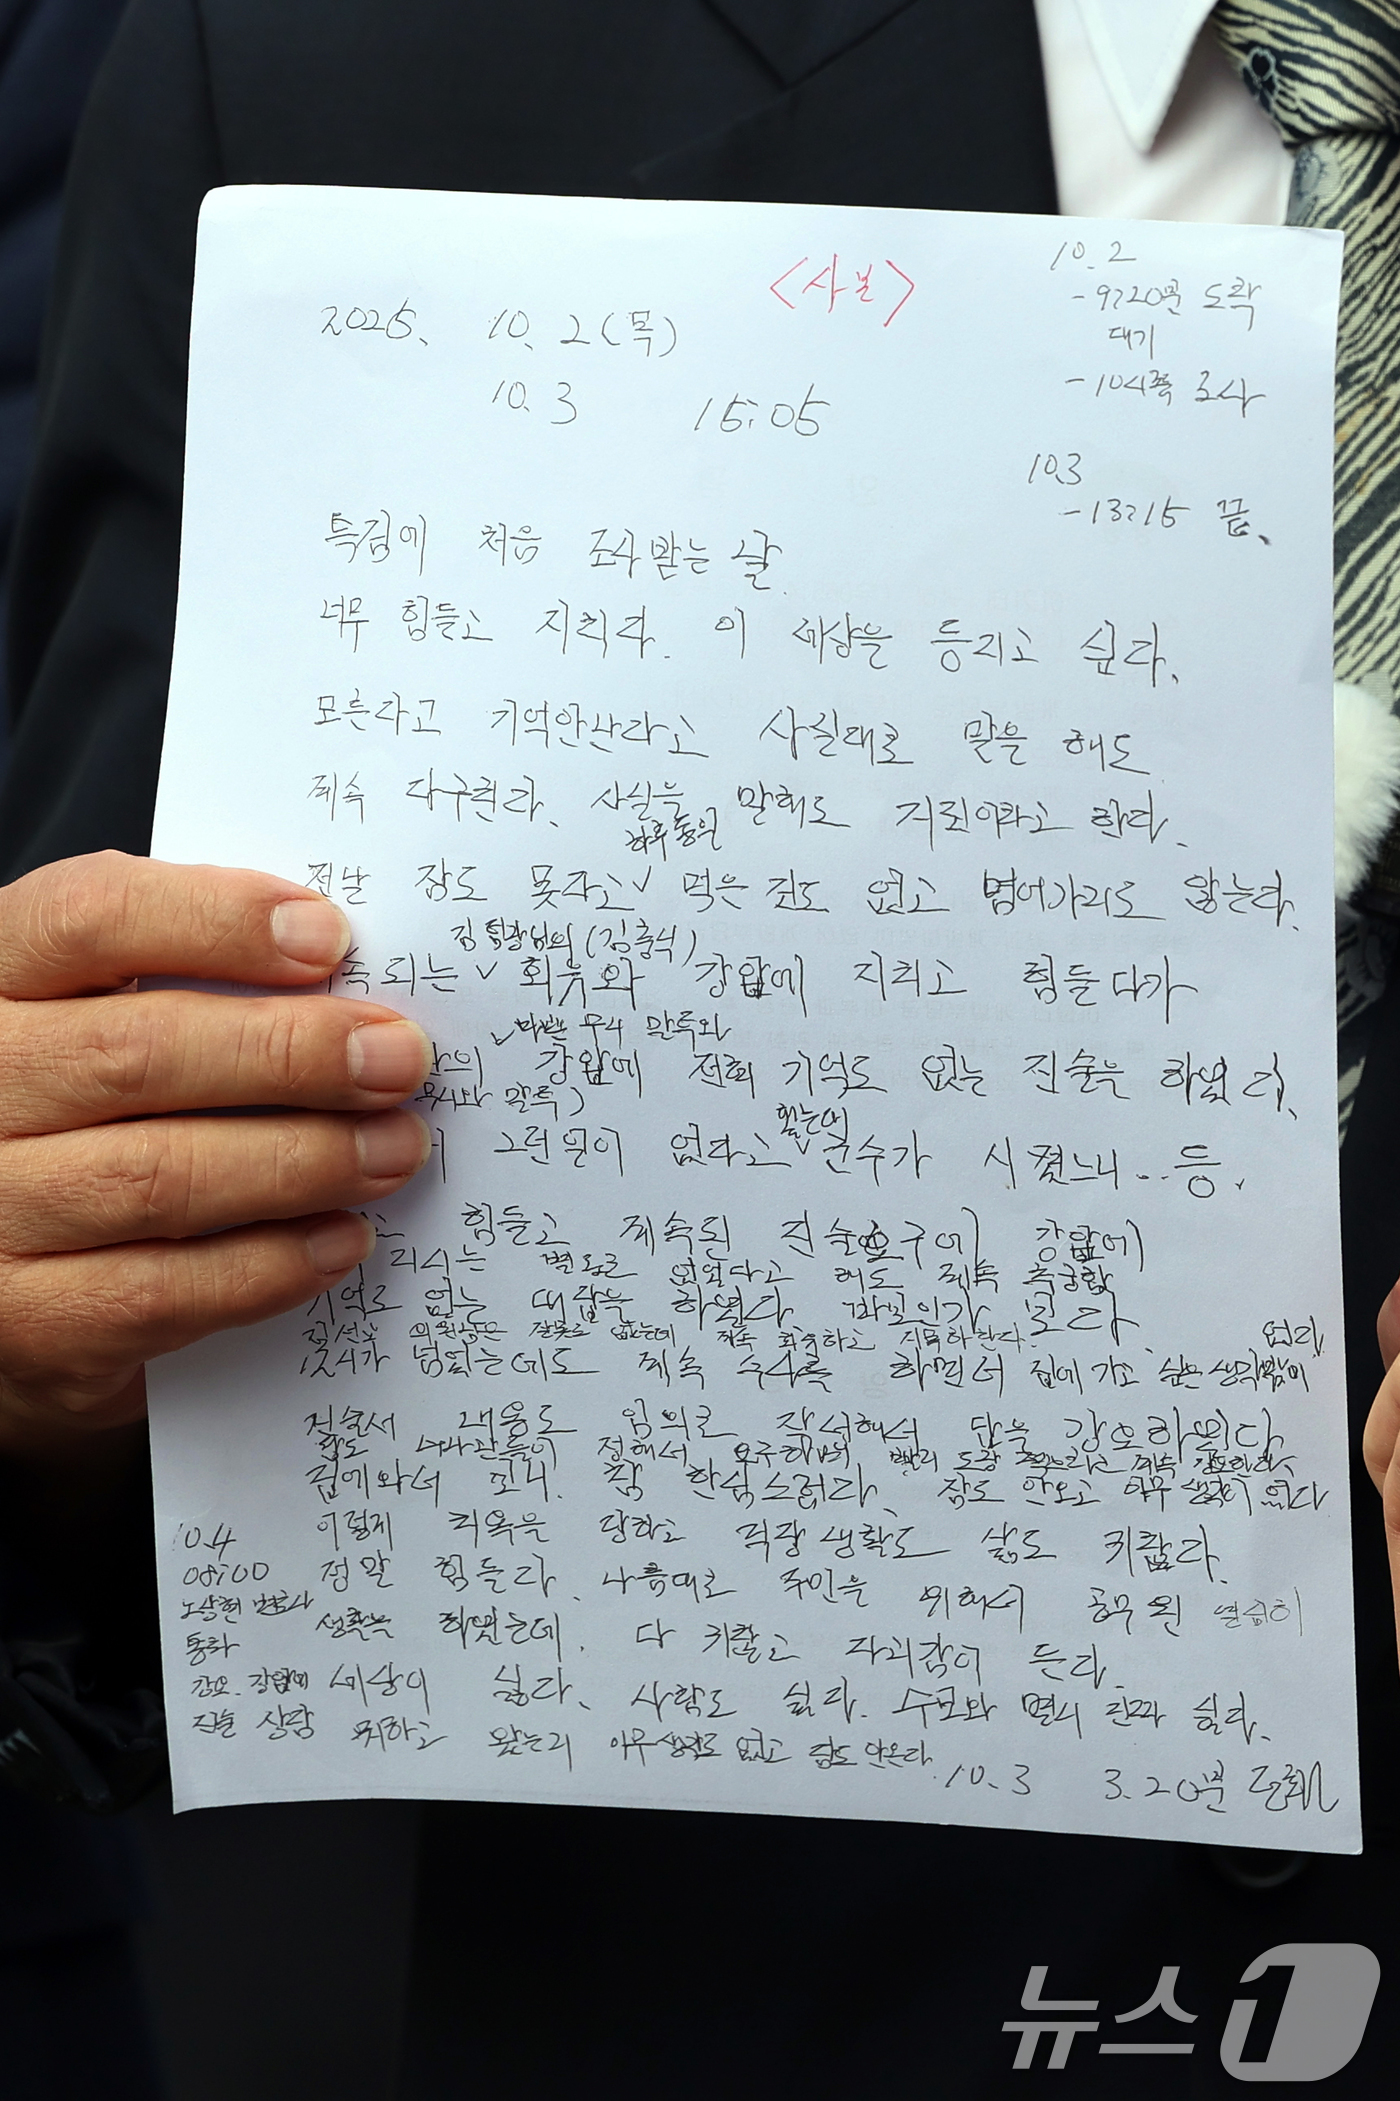 <사본>
10.2
-9:20분 도착
대기
-10시쯤 조사
2025. 10. 2(목)
10. 3 15:05
10.3
-13:15 끝.
특검에 처음 조사받는 날.
너무 힘들고 지치다. 이 세상을 등지고 싶다.
모른다고 기억안난다고 사실대로 말을 해도
계속 다구친다. 사실을 말해도 거짓이라고 한다.
하루종일
전날 잠도 못자고 ∨ 먹은것도 없고 멍어가리로 앉는다.
김 팀장님의 (김충식)
속되는 ∨ 회유와 강압에 지치고 힘들다가
∨
말투와
의 강압에 전혀 기억도 없는 진술을 하였다.
무시와 말투)
그런일이 없다고 ∨ 군수가 시켰느니...등.
힘들고 계속된 진술요구에 강압에
지시는 별도로 없었다고 해도 계속 추궁함
기억도 없는 대답을 하였다 바보인가 보다.
김선교 의원님은 잘못도 없는데 계속 회유하고 지목하란다. 없다.
12시가 넘었는데도 계속 수사를 하면서 집에 가고 싶은 생각밖에
진술서 내용도 임의로 작성해서 답을 강요하였다
답도 수사관들이 정해서 요구하며 빨리 도장 찍으라고 계속 강요한다.
집에와서 보니. 참 한심스럽다. 잠도 안오고 아무 생각이 없다
10.4
이렇게 치욕을 당하고 직장생활도 삶도 귀찮다.
08:00
정말 힘들다. 나름대로 주민을 위해서 공무원 열심히
노상현 변호사
생활을 하였는데. 다 귀찮고 자괴감이 든다.
통화
강요. 강압에
세상이 싫다. 사람도 싫다. 수모와 멸시 진짜 싫다.
진술 상담
왔는지 아무생각도 없고 잠도 안온다.
10.3 3.20분